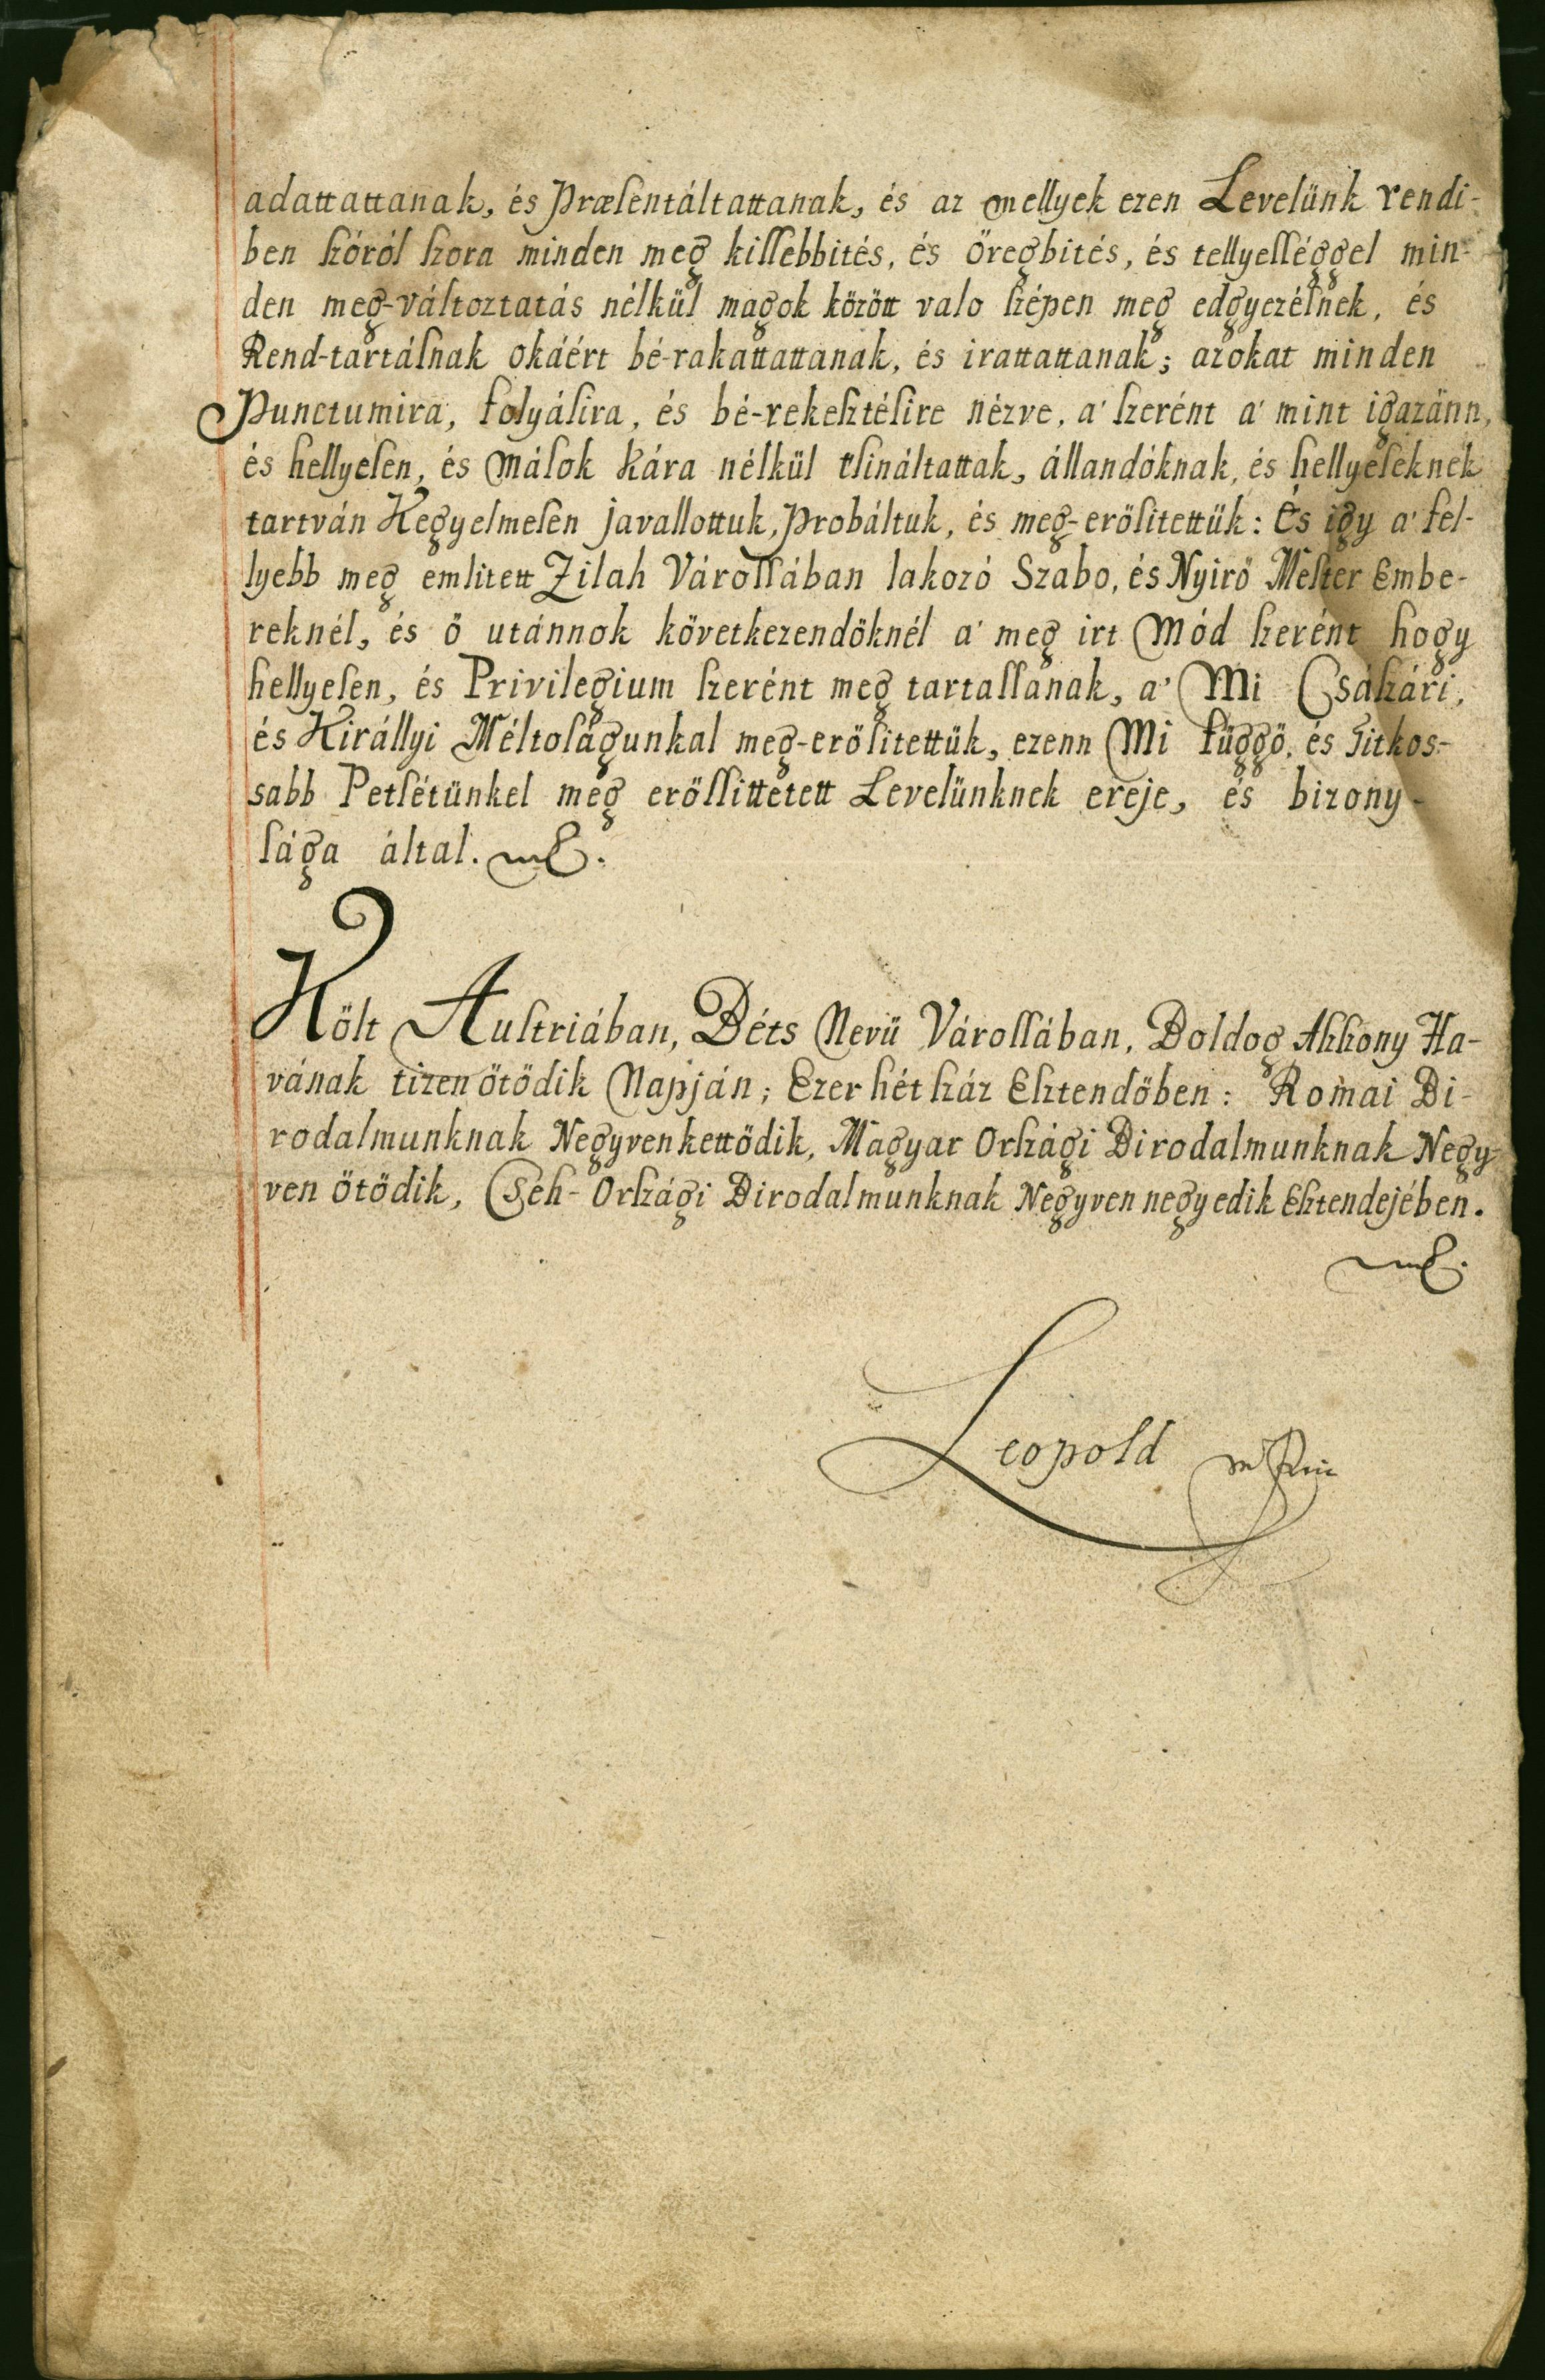 adattattanak, és Præsentáltattanak, és az mellyek ezen Levelünk rendi-
ben szóról szora minden meg kissebbités, és öregbités, és tellyességgel min-
den meg-változtatás nélkül magok között valo szépen meg edgyezésnek, és
Rend-tartásnak okáért bé-rakattattanak, és irattattanak; azokat minden
Punctumira, folyásira, és bé-rekesztésire nézve, a' szerént a' mint igazánn,
és hellyesen, és mások kára nélkül tsináltattak, állandóknak, és hellyeseknek
tartván Kegyelmesen javallottuk, Probáltuk, és meg-erösitettük: És igy a' fel-
lyebb meg emlitett Zilah Várossában lakozó Szabo, és Nyirö Mester Embe-
reknél, és ö utánnok következendöknél a' meg irt Mód szerént hogy
hellyesen, és Privilegium szerént meg tartassanak, a' Mi Császári,
és Királlyi Méltoságunkal meg-erösitettük, ezenn Mi függö, és Titkos-
sabb Petsétünkel meg erössittetett Levelünknek ereje, és bizony-
sága által.
Költ Austriában, Béts Nevü Várossában, Boldog Aszszony Ha-
vának tizen ötödik Napján; Ezer hét száz Esztendöben: Romai Bi-
rodalmunknak Negyvenkettödik, Magyar Országi Birodalmunknak Negy-
ven ötödik, Cseh-Országi Birodalmunknak Negyven negyedik Esztendejében.
Leopold